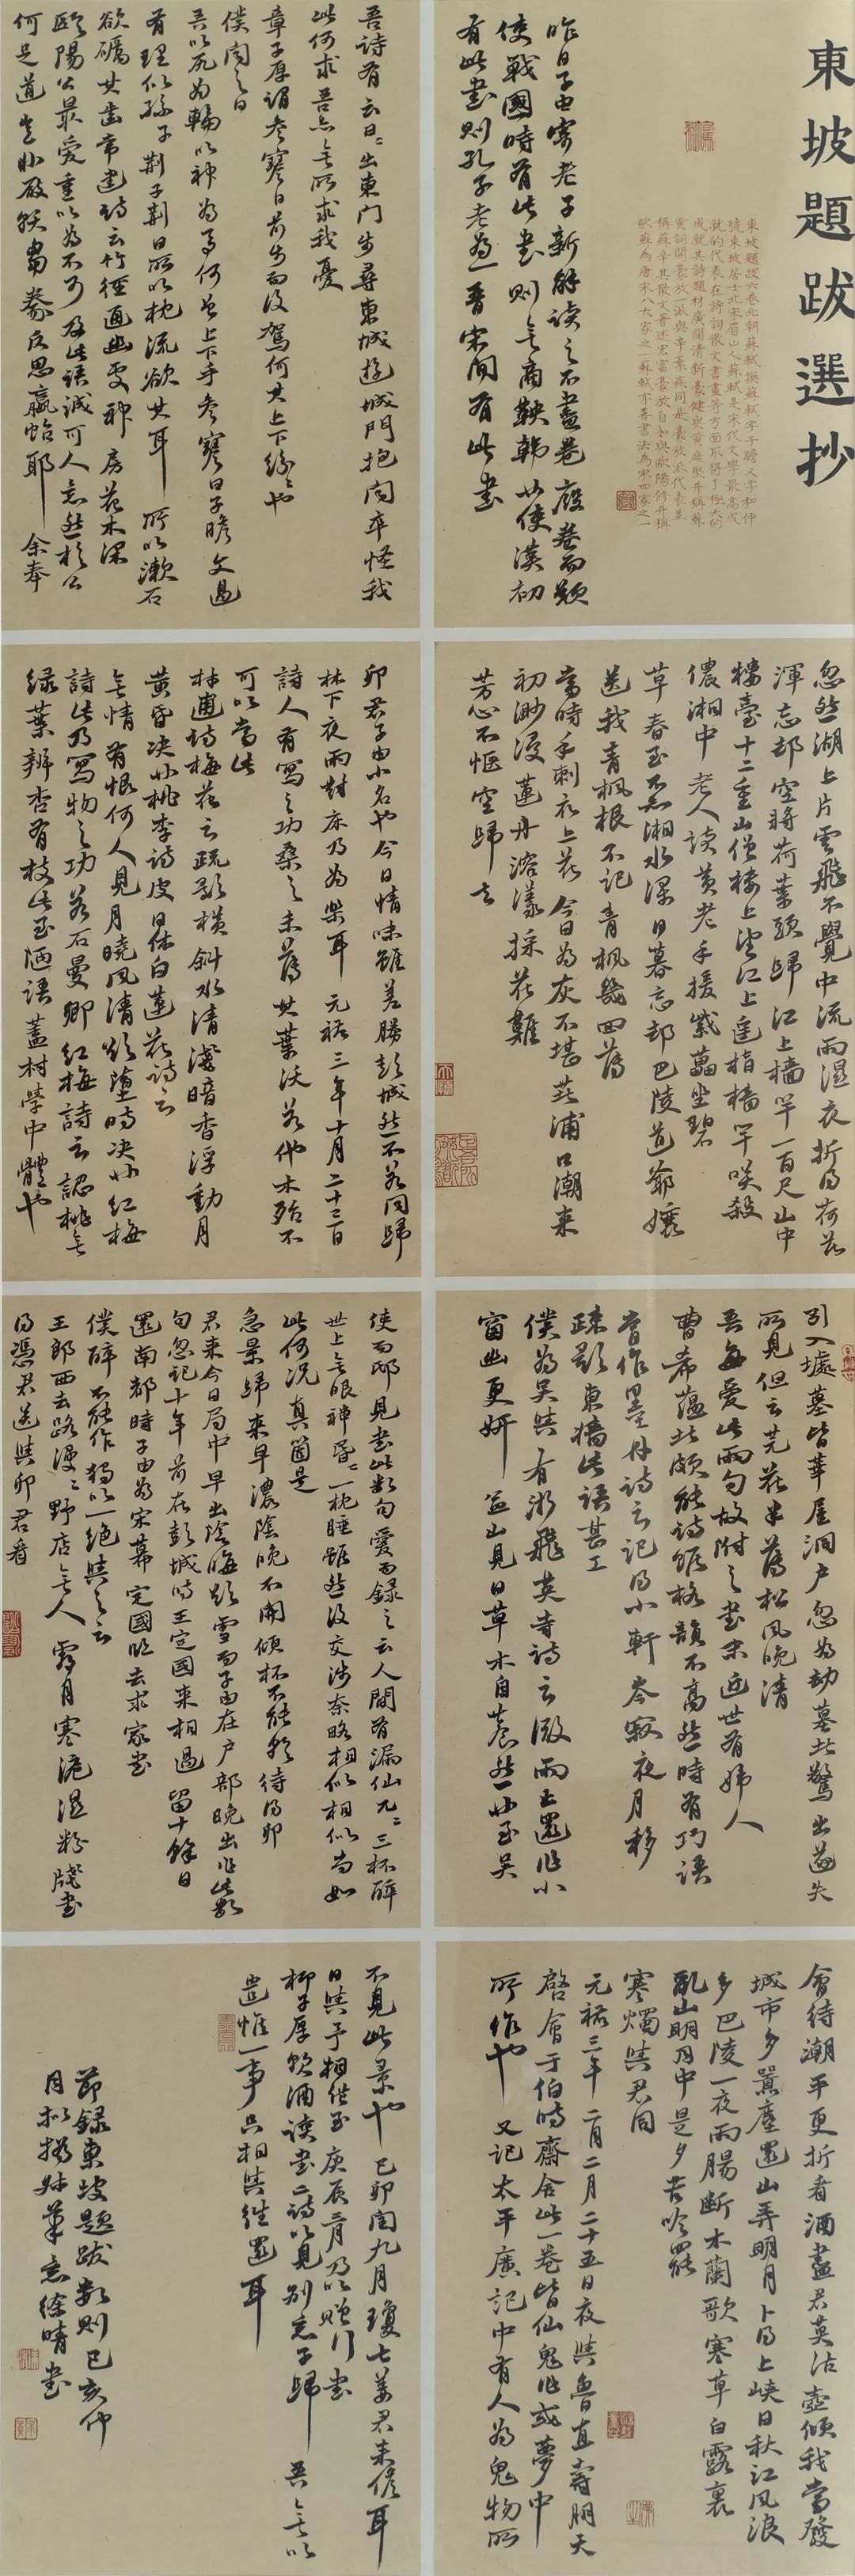 東坡題跋選抄
東坡題跋六卷北朝蘇軾撰蘇軾字子瞻又字和仲
號東坡居士北宋眉山人蘇軾是宋代文學最高成
就的代表在詩詞散文書畫等方面取得了極大的
成就其詩題材廣闊清新豪健與黃庭堅并稱蘇
黃詞開豪放一派與辛棄疾同是豪放派代表并
稱蘇辛其散文著述宏富豪放自如與歐陽修并稱
歐蘇為唐宋八大家之一蘇軾亦善書法為宋四家之一
昨日子由寄老子新解讀之不盡卷廢卷而歎
使戰國時有此書則無商鞅韓非使漢初
有此書則孔子老為一晋宋間有此書
吾詩有云日日出東門步尋東城遊城門抱関卒怪我
此何求吾亦無所求我憂
章子厚謂參寥曰前步而後駕何其上下紛紛也
僕聞之曰
吾以尻為輪以神為馬何曾上下乎參寥曰子瞻文過
有理似孫子荆子荆曰所以枕流欲洗其耳所以漱石
欲礪其齒常建詩云竹徑通幽處禅房花木深
歐陽公最愛重以為不可及此語誠可人意然於公
何足道豈非厭飫芻豢反思螺蛤耶 余奉
忽然湖上片雲飛不覺中流雨濕衣折得荷花
渾忘却空將荷葉頭歸江上檣竿一百尺山中
樓臺十二重山僧樓上望江上遥指檣竿笑殺
儂湘中老人讀黃老手援紫藟坐碧
草春至不知湘水深日暮忘却巴陵道爺孃
送我青楓根不記青楓幾回落
當時手刺衣上花今日為灰不堪著浦口潮来
初渺漫蓮舟溶漾採花難
芳心不愜空歸去
卯君子由小名也今日情味雖差勝彭城然不若同歸
林下夜雨對床乃為樂耳 元祐三年十月二十三日
詩人有寫物之功桑之未落其葉沃若他木殆不
可以當此
林逋詩梅花云疏影橫斜水清淺暗香浮動月
黃昏决非桃李詩皮日休白蓮花詩云
無情有恨何人見月曉風清欲墮時决非紅梅
詩此乃寫物之功若石曼卿紅梅詩云認桃無
緑葉辨杏有枝此至陋語蓋村學中體也
引入墟墓皆華屋洞户忽為劫墓者驚出遂失
所見但云芫花半落松風晚清
吾每愛此兩句故附之書末近世有婦人
曹希蘊者頗能詩雖格韻不高然時有巧語
嘗作墨竹詩云記得小軒岑寂夜月移
疎影上東牆此語甚工
僕為吴興有游飛英寺詩云微雨止還作小
窗幽更妍盆山不見日草木自蒼然非至吴
使而邸見書此數句愛而録之云人間有漏仙兀兀三杯醉
世上無眼禅昏昏一枕睡雖然没交涉奈略相似相似尚如
此何况真箇是
急景歸来早濃陰晚不開傾杯不能飲待得卯
君来今日局中早出陰晦欲雪而子由在户部晚出作此數
句忽記十年前在彭城時王定國来相過留十餘日
還南都時子由為宋幕定國臨去求家書
僕醉不能作獨以一絶與之云
王郎西去路漫漫野店無人霜月寒淚濕粉牋書
不得憑君送與卯君看
會待潮平更折看酒盡君莫沽壺傾我當發
城市多囂塵還山弄明月卜得上峡日秋江風浪
多巴陵一夜雨腸斷木蘭歌寒草白露裏
亂山明月中是夕苦吟罷
寒燭與君同
元祐三年二月二十五日夜與魯直壽朋天
啓會于伯時齋舍此一卷皆仙鬼作或夢中
所作也 又記太平廣記中有人為鬼物所
不見此景也 己卯閏九月瓊士姜君来儋耳
日與予相從至庚辰三月乃歸以贈行書
柳子厚飲酒讀書二詩以見别意子歸 吾無以
遣惟一事只相與往還耳
節録東坡題跋數則己亥仲
月於揚州筆意徐晴書